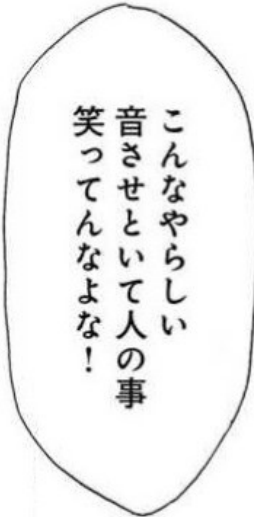 こんなやらしい
音させといて人の事
笑ってんなよな!